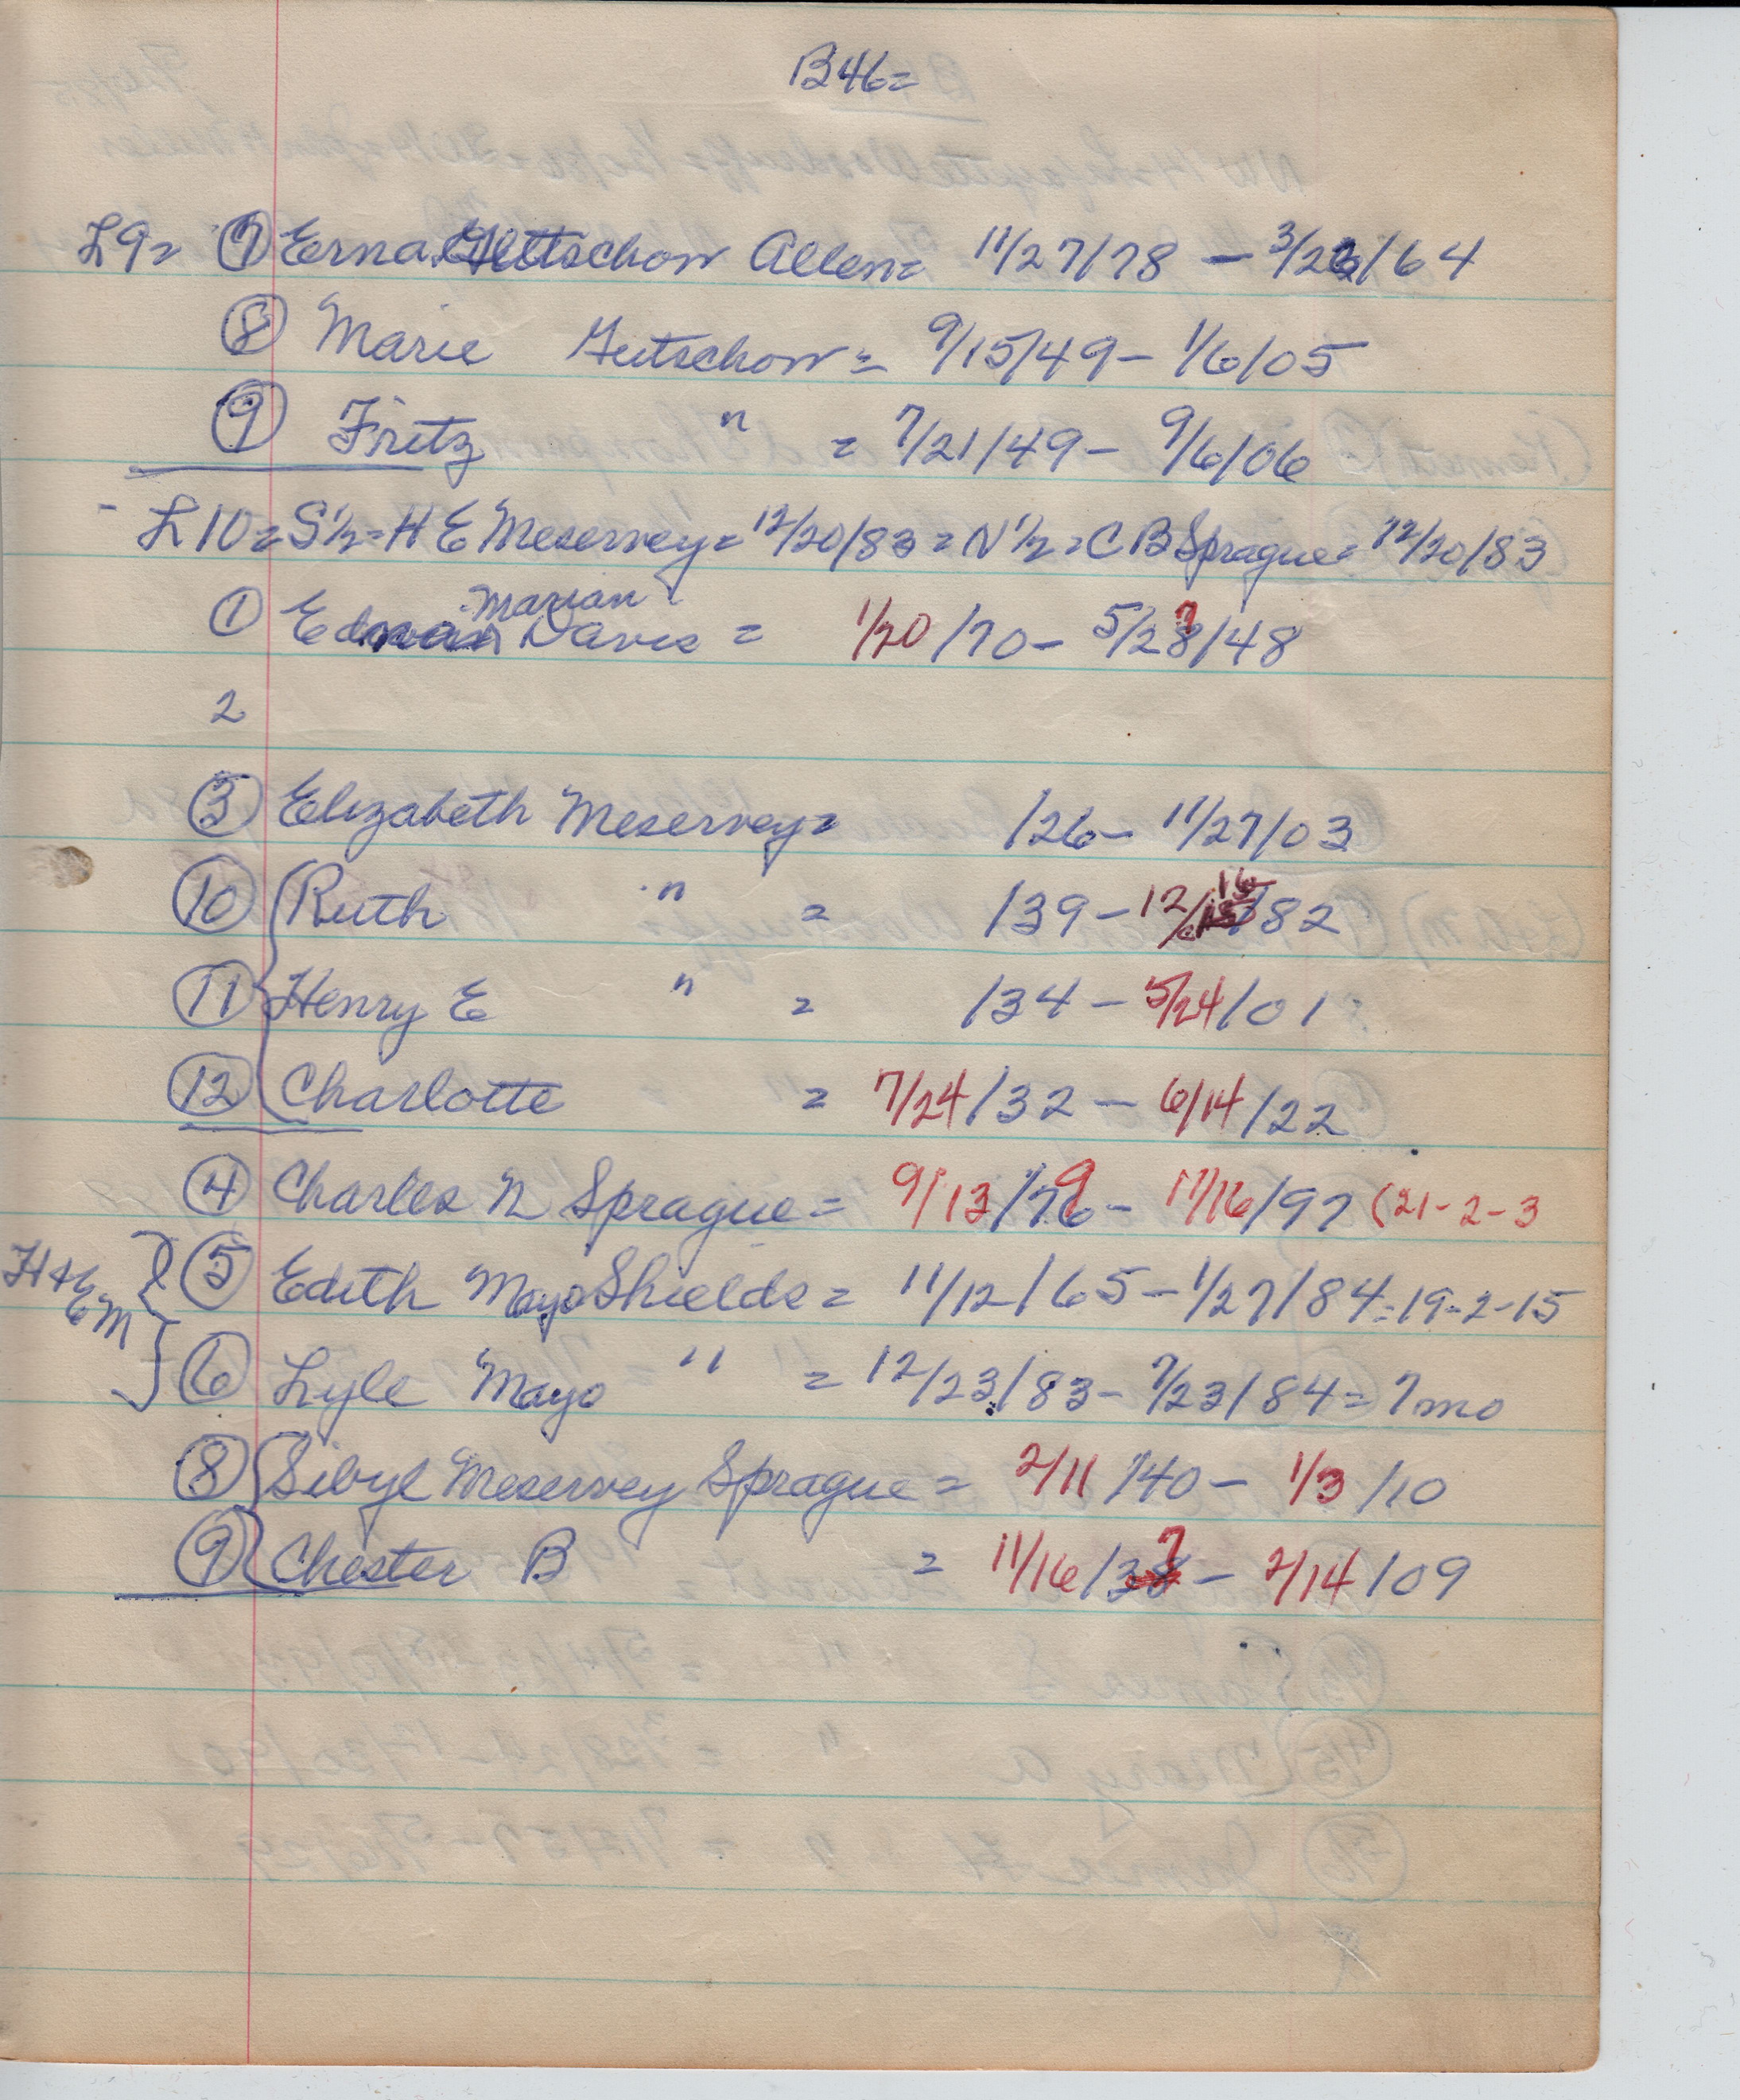 B46=
L9= ⑦ Erna Guttschow Allen= 11/27/78 - 3/26/64
⑧ Marie Gutschow = 9/15/49 - 1/6/05
⑨ Fritz " = 7/21/49 - 9/6/06
- L10= S½ = H E Meservey = 12/20/83 = N½ = C B Sprague = 12/20/83
Marian
① Davis = 1/20/70 - 5/27/48
2
③ Elizabeth Meservey= /26 - 11/27/03
⑩ Ruth " = /39 - 12/16/82
⑪ Henry E " = /34 - 5/24/01
⑫ Charlotte = 7/24/32 - 6/14/22
④ Charles N Sprague = 9/13/76 9 - 11/16/97 (21-2-3
H & E M
⑤ Edith Mayo Shields = 11/12/65 - 1/27/84 = 19-2-15
⑥ Lyle Mayo " = 12/23/83 - 7/23/84 = 7 mo
⑧ Sibyl Meservey Sprague = 2/11/40 - 1/3/10
⑨ Chester B = 11/16/37 - 2/14/09